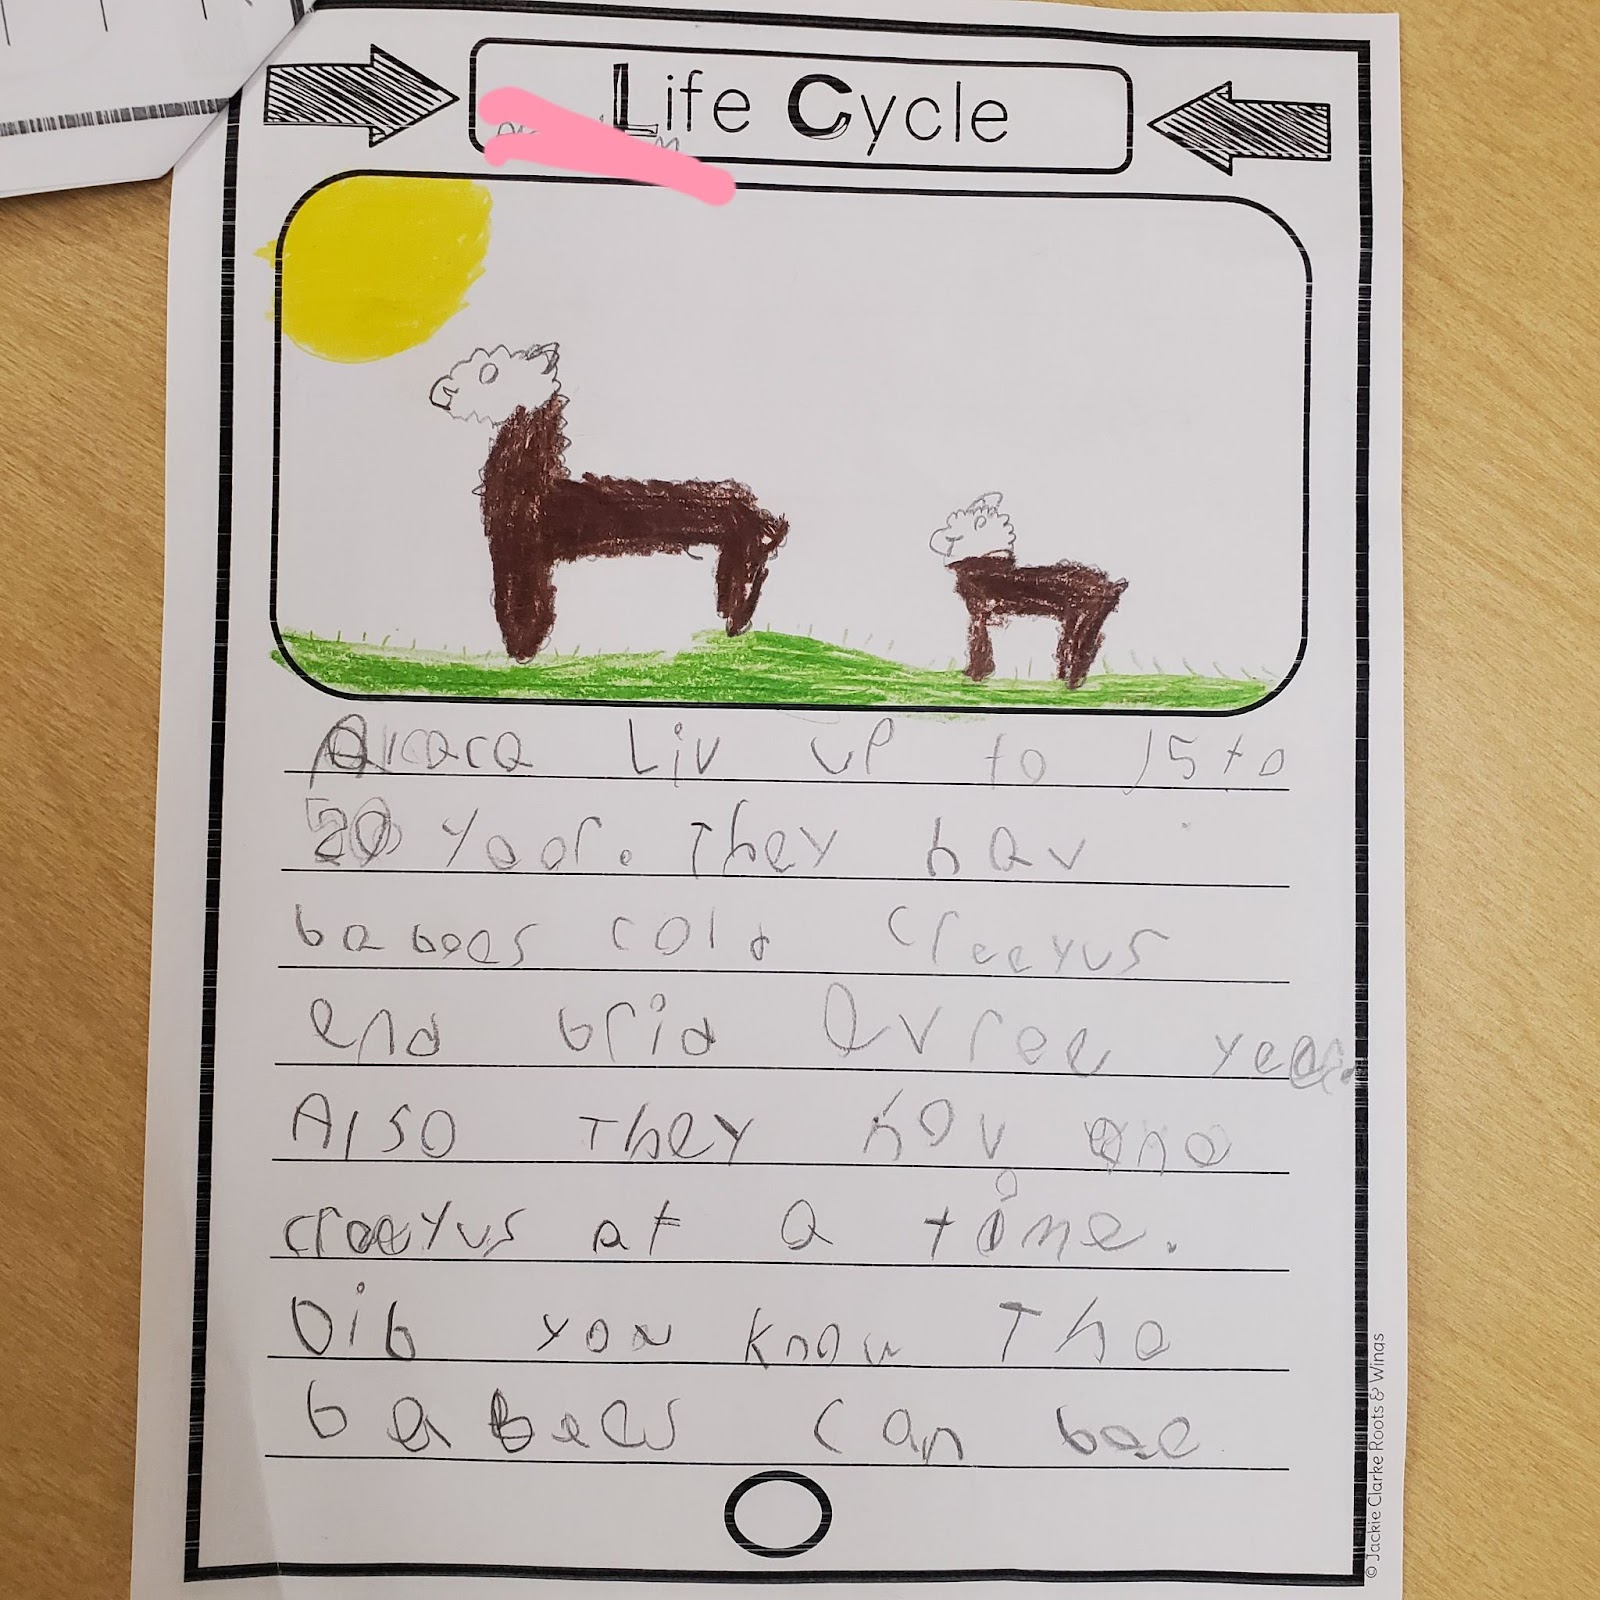 Life Cycle
Alcaca Liv up to 15 to
20 Year. They hav
babees cold creeyus
end brid Evree yeer.
Also They hav one
creeyus at a time.
Dib you know The
babees can bee
© Jackie Clarke Roots & Wings